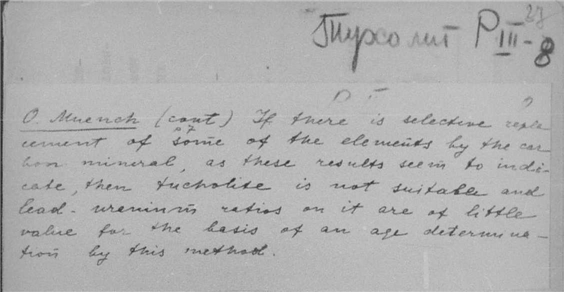 27
Тухолит P III-8
O. Muench (cont.) If there is selective repla
cement of some of the elements by the car
bon mineral, as these results seem to indi-
cate, then tucholite is not suitable and
lead-ureninm ratios on it are of little
value for the basis of an age determina-
tion by this method.